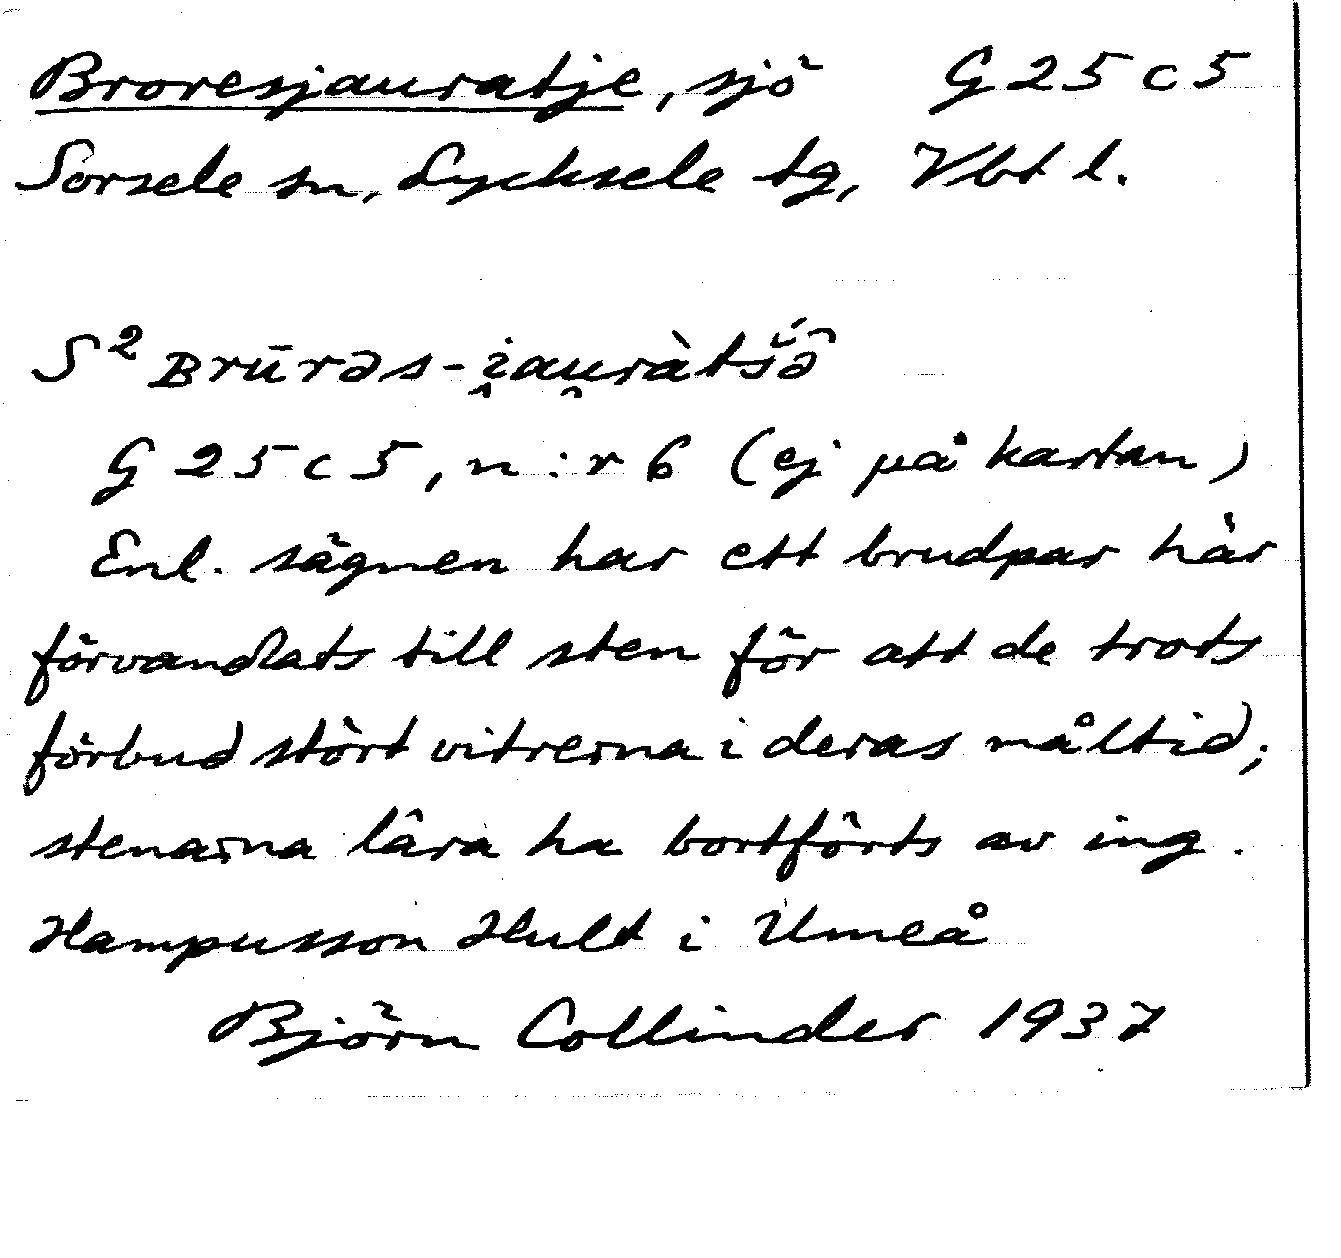 Broresjauratje, sjö G 25 c 5
Sorsele sn, Lycksele tg, Vbt l.
S² Brūrəs-i̯au̯ràtšə̂
G 25 c 5, n:r 6 (ej på kartan)
Enl. sägnen har ett brudpar här
förvandlats till sten för att de trots
förbud stört vitrerna i deras måltid;
stenarna lära ha bortförts av ing.
Hampusson Huld i Umeå
Björn Collinder 1937